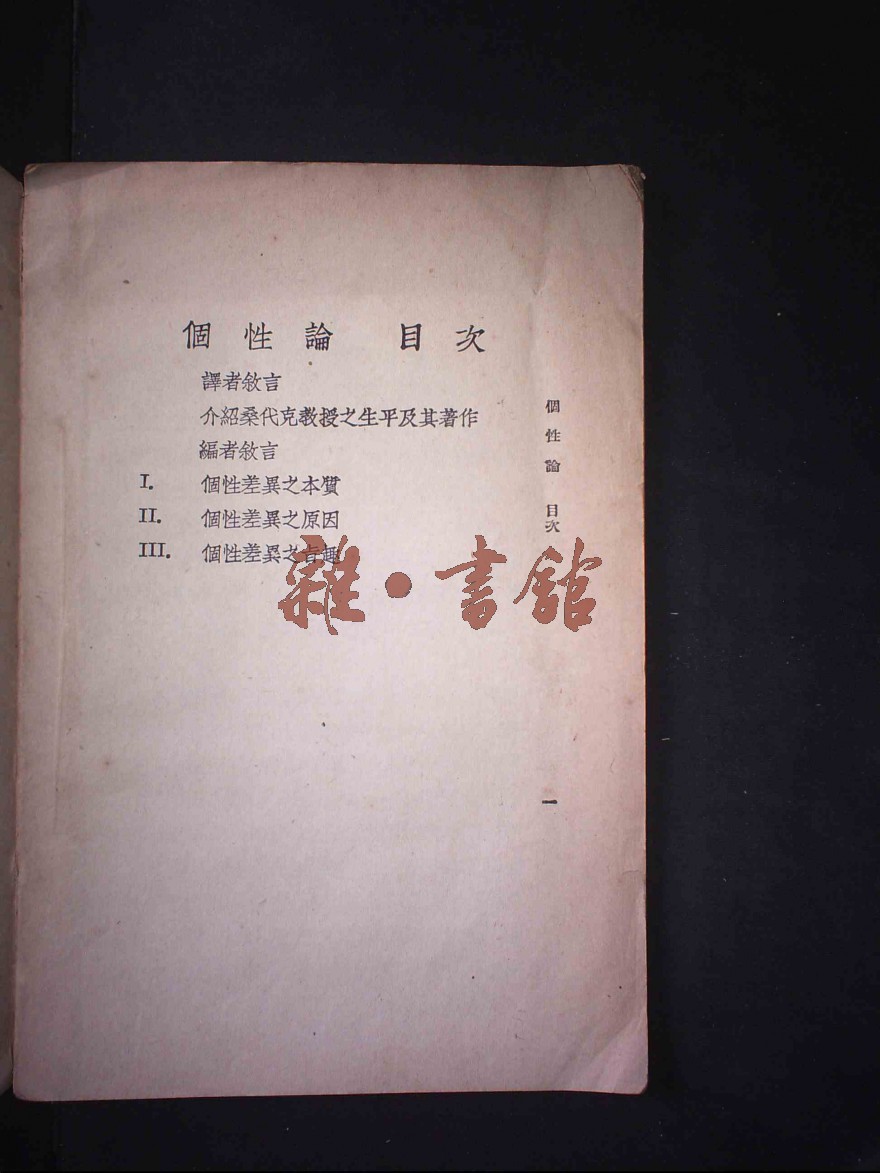 個性論 目次
譯者敘言
介紹桑代克教授之生平及其著作
編者敘言
I. 個性差異之本質
II. 個性差異之原因
III. 個性差異之旨趣
個性論 目次
一
雜·書館